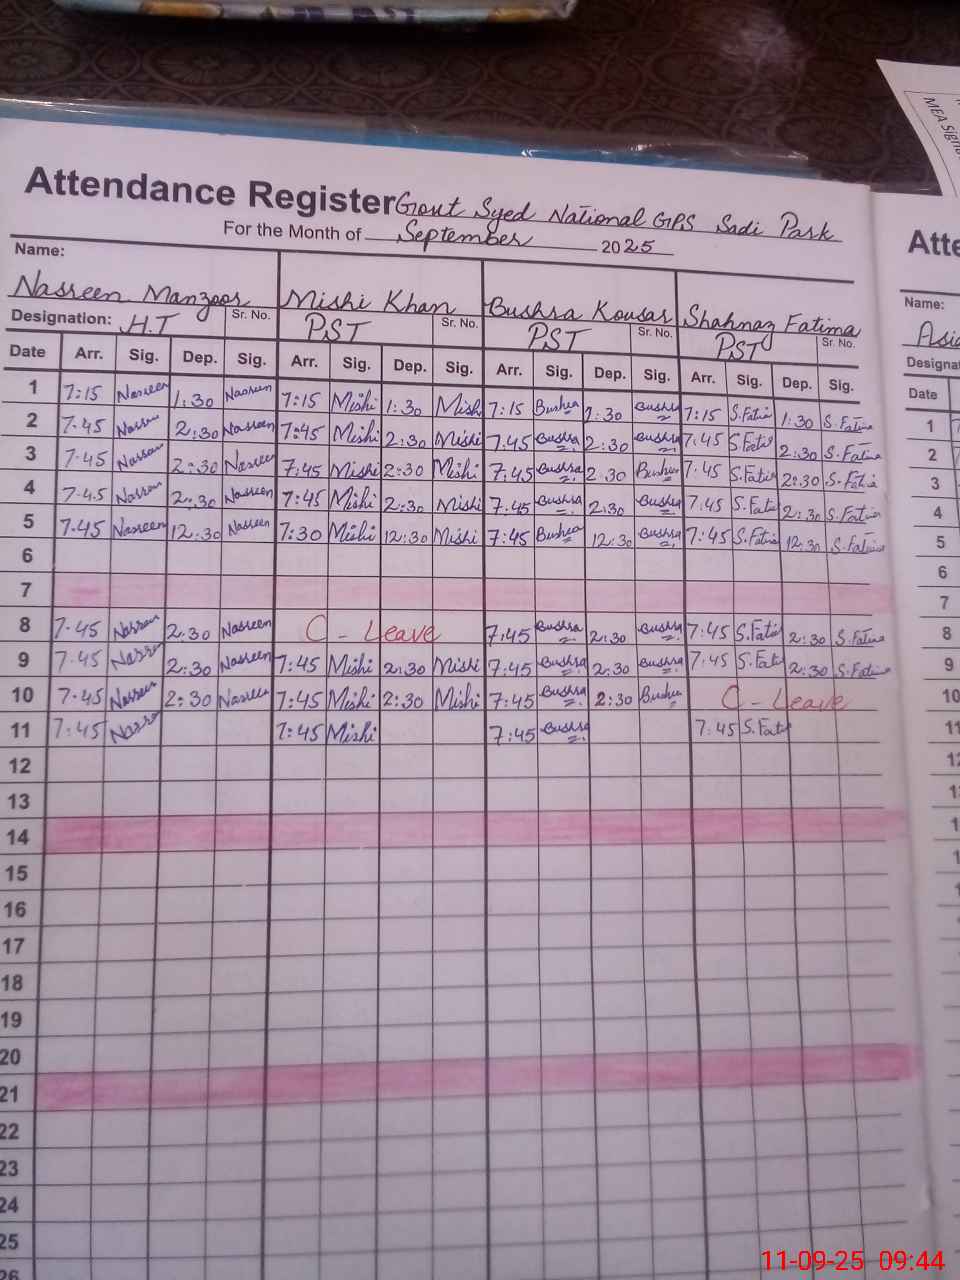 MEA Sign
Attendance Register Govt Syed National GPS Sadi Park
For the Month of September 2025
Name:
Nasreen Manzoor Mishi Khan Bushra Kousar Shahnaz Fatima
Designation: H.T Sr. No. PST Sr. No. PST Sr. No. PST Sr. No.
Date Arr. Sig. Dep. Sig. Arr. Sig. Dep. Sig. Arr. Sig. Dep. Sig. Arr. Sig. Dep. Sig.
1 7:15 Nasreen 1:30 Nasreen 7:15 Mishi 1:30 Mishi 7:15 Bushra 1:30 Bushra 7:15 S.Fatima 1:30 S.Fatima
2 7.45 Nasreen 2:30 Nasreen 7:45 Mishi 2:30 Mishi 7.45 Bushra 2:30 Bushra 7.45 S.Fatima 2:30 S.Fatima
3 7.45 Nasreen 2:30 Nasreen 7:45 Mishi 2:30 Mishi 7:45 Bushra 2.30 Bushra 7.45 S.Fatima 2:30 S.Fatima
4 7.45 Nasreen 2:30 Nasreen 7:45 Mishi 2:30 Mishi 7.45 Bushra 2:30 Bushra 7.45 S.Fatima 2:30 S.Fatima
5 7.45 Nasreen 12:30 Nasreen 7:30 Mishi 12:30 Mishi 7:45 Bushra 12:30 Bushra 7:45 S.Fatima 12:30 S.Fatima
6
7
8 7.45 Nasreen 2:30 Nasreen C - Leave 7:45 Bushra 2:30 Bushra 7:45 S.Fatima 2:30 S.Fatima
9 7.45 Nasreen 2:30 Nasreen 7:45 Mishi 2:30 Mishi 7:45 Bushra 2:30 Bushra 7:45 S.Fatima 2:30 S.Fatima
10 7.45 Nasreen 2:30 Nasreen 7:45 Mishi 2:30 Mishi 7:45 Bushra 2:30 Bushra C - Leave
11 7:45 Nasreen 7:45 Mishi 7:45 Bushra 7:45 S.Fatima
12
13
14
15
16
17
18
19
20
21
22
23
24
25
26
Atte
Name:
Asia
Designat
Date
1
2
3
4
5
6
7
8
9
10
11
12
11-09-25 09:44